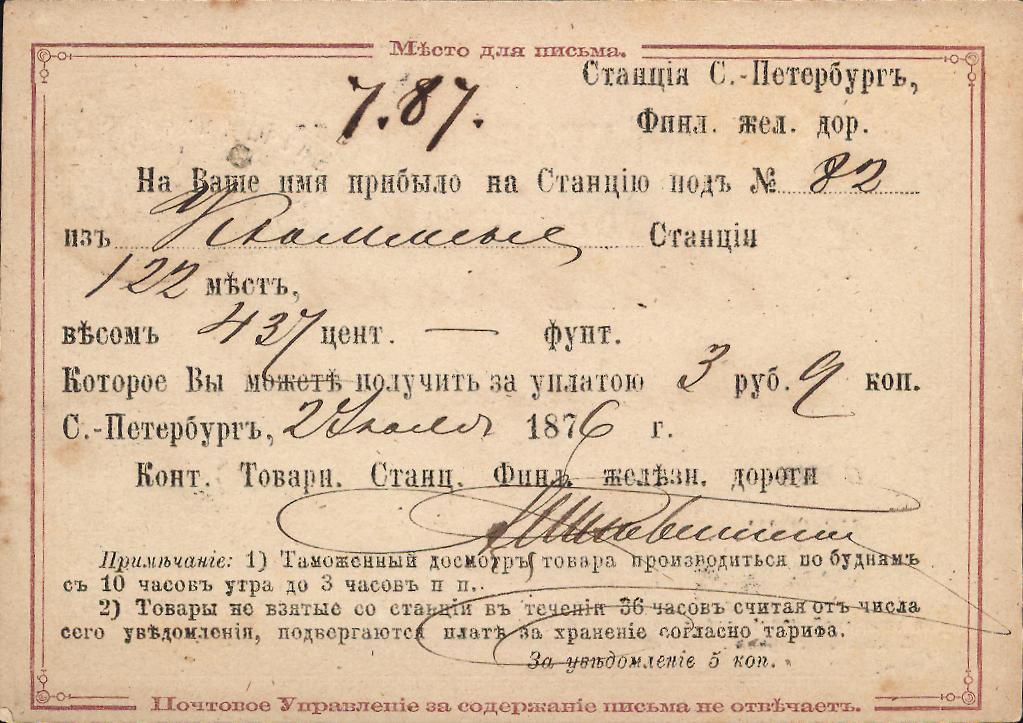 Мѣсто для письма.
7.87.
Станція С.-Петербургъ,
Финл. жел. дор.
На Ваше имя прибыло на Станцію подъ № 82
изъ Станціи
122 мѣстъ,
вѣсомъ 437 цент. — фунт.
Которое Вы можетѣ получить за уплатою 3 руб. 9 коп.
С.-Петербургъ, 2 1876 г.
Конт. Товарн. Станц. Финл. желѣзн. дороги
Примѣчаніе: 1) Таможенный досмотръ товара производиться по буднямъ
съ 10 часовъ утра до 3 часовъ п п..
2) Товары не взятые со станціи въ теченіи 36 часовъ считая отъ числа
сего увѣдомленія, подвергаются платѣ за храненіе согласно тарифа.
За увѣдомленіе 5 коп.
Почтовое Управленіе за содержаніе письма не отвѣчаетъ.